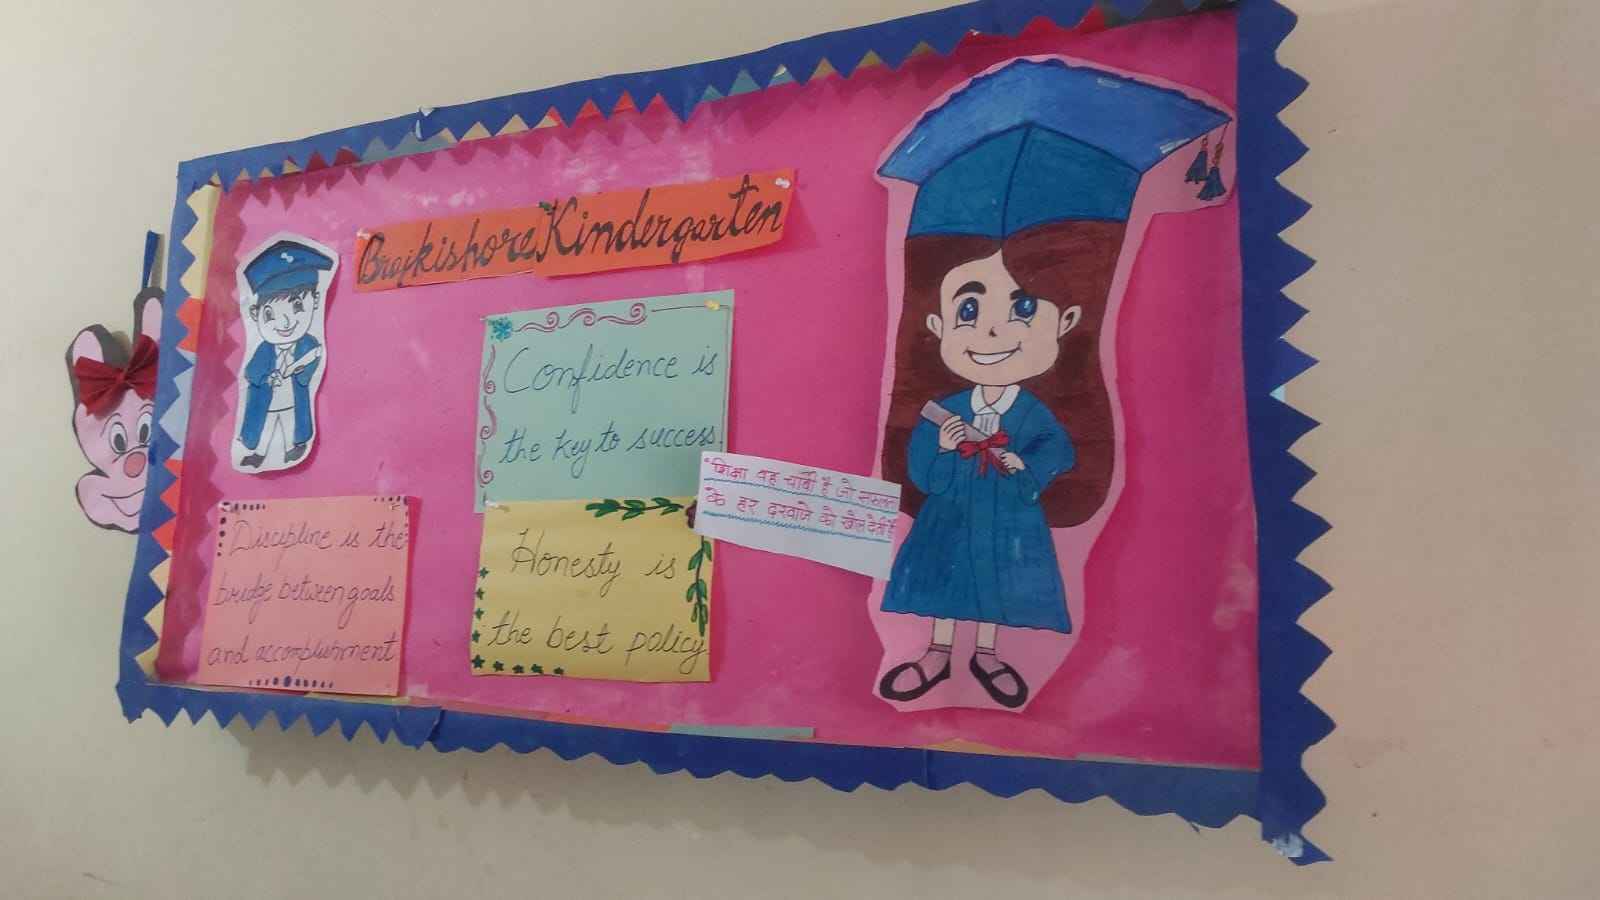 Brajkishore Kindergarten
Confidence is
the key to success.
"शिक्षा वह चाबी है जो सफलता
के हर दरवाजे को खोल देती है
Discipline is the
bridge between goals
and accomplishment.
Honesty is
the best policy